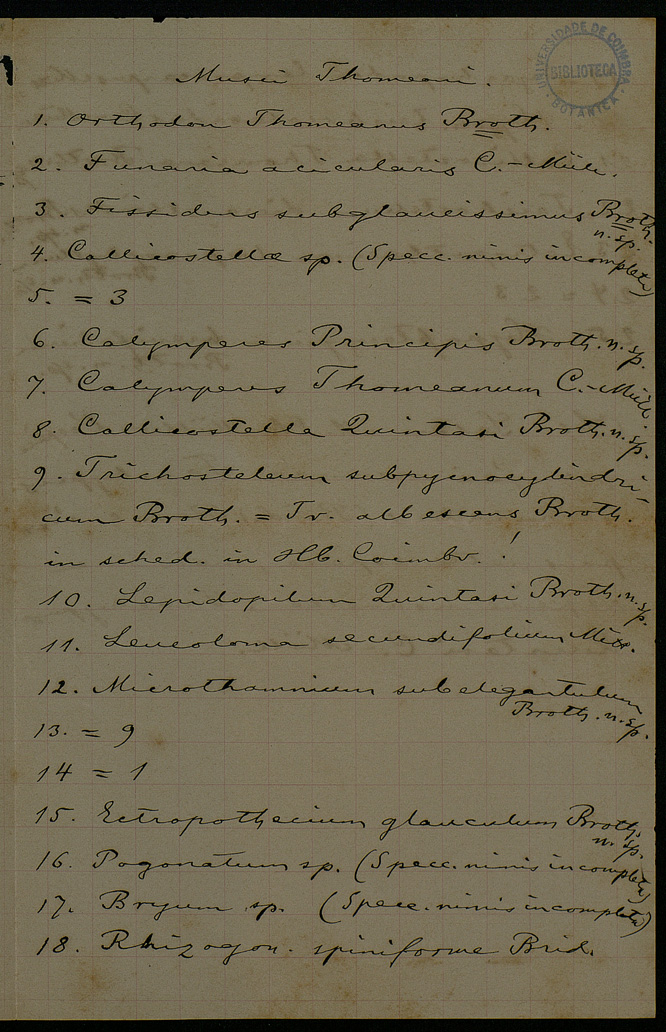 UNIVERSIDADE DE COIMBRA
BIBLIOTECA
BOTANICA
Musci Thomeani.
1. Orthodon Thomeanus Broth.
2. Funaria acicularis C.-Müll.
3. Fissidens subglaucissimus Broth. n. sp.
4. Callicostella sp. (Specc. nimis incompleta)
5. = 3
6. Calymperes Principis Broth. n. sp.
7. Calymperes Thomeanum C.-Müll.
8. Callicostella Quintasi Broth. n. sp.
9. Trichosteleum subpycnocylindri-
cum Broth. = Tr. albescens Broth.
in sched. in Hb. Coimbr. !
10. Lepidopilum Quintasi Broth. n. sp.
11. Leucoloma secundifolium Mitt.
12. Microthamnium subelegantulum
Broth. n. sp.
13. = 9
14 = 1
15. Ectropothecium glauculum Broth. n. sp.
16. Pogonatum sp. (Specc. nimis incompleta)
17. Bryum sp. (Specc. nimis incompleta)
18. Rhizogon. spiniforme Brid.